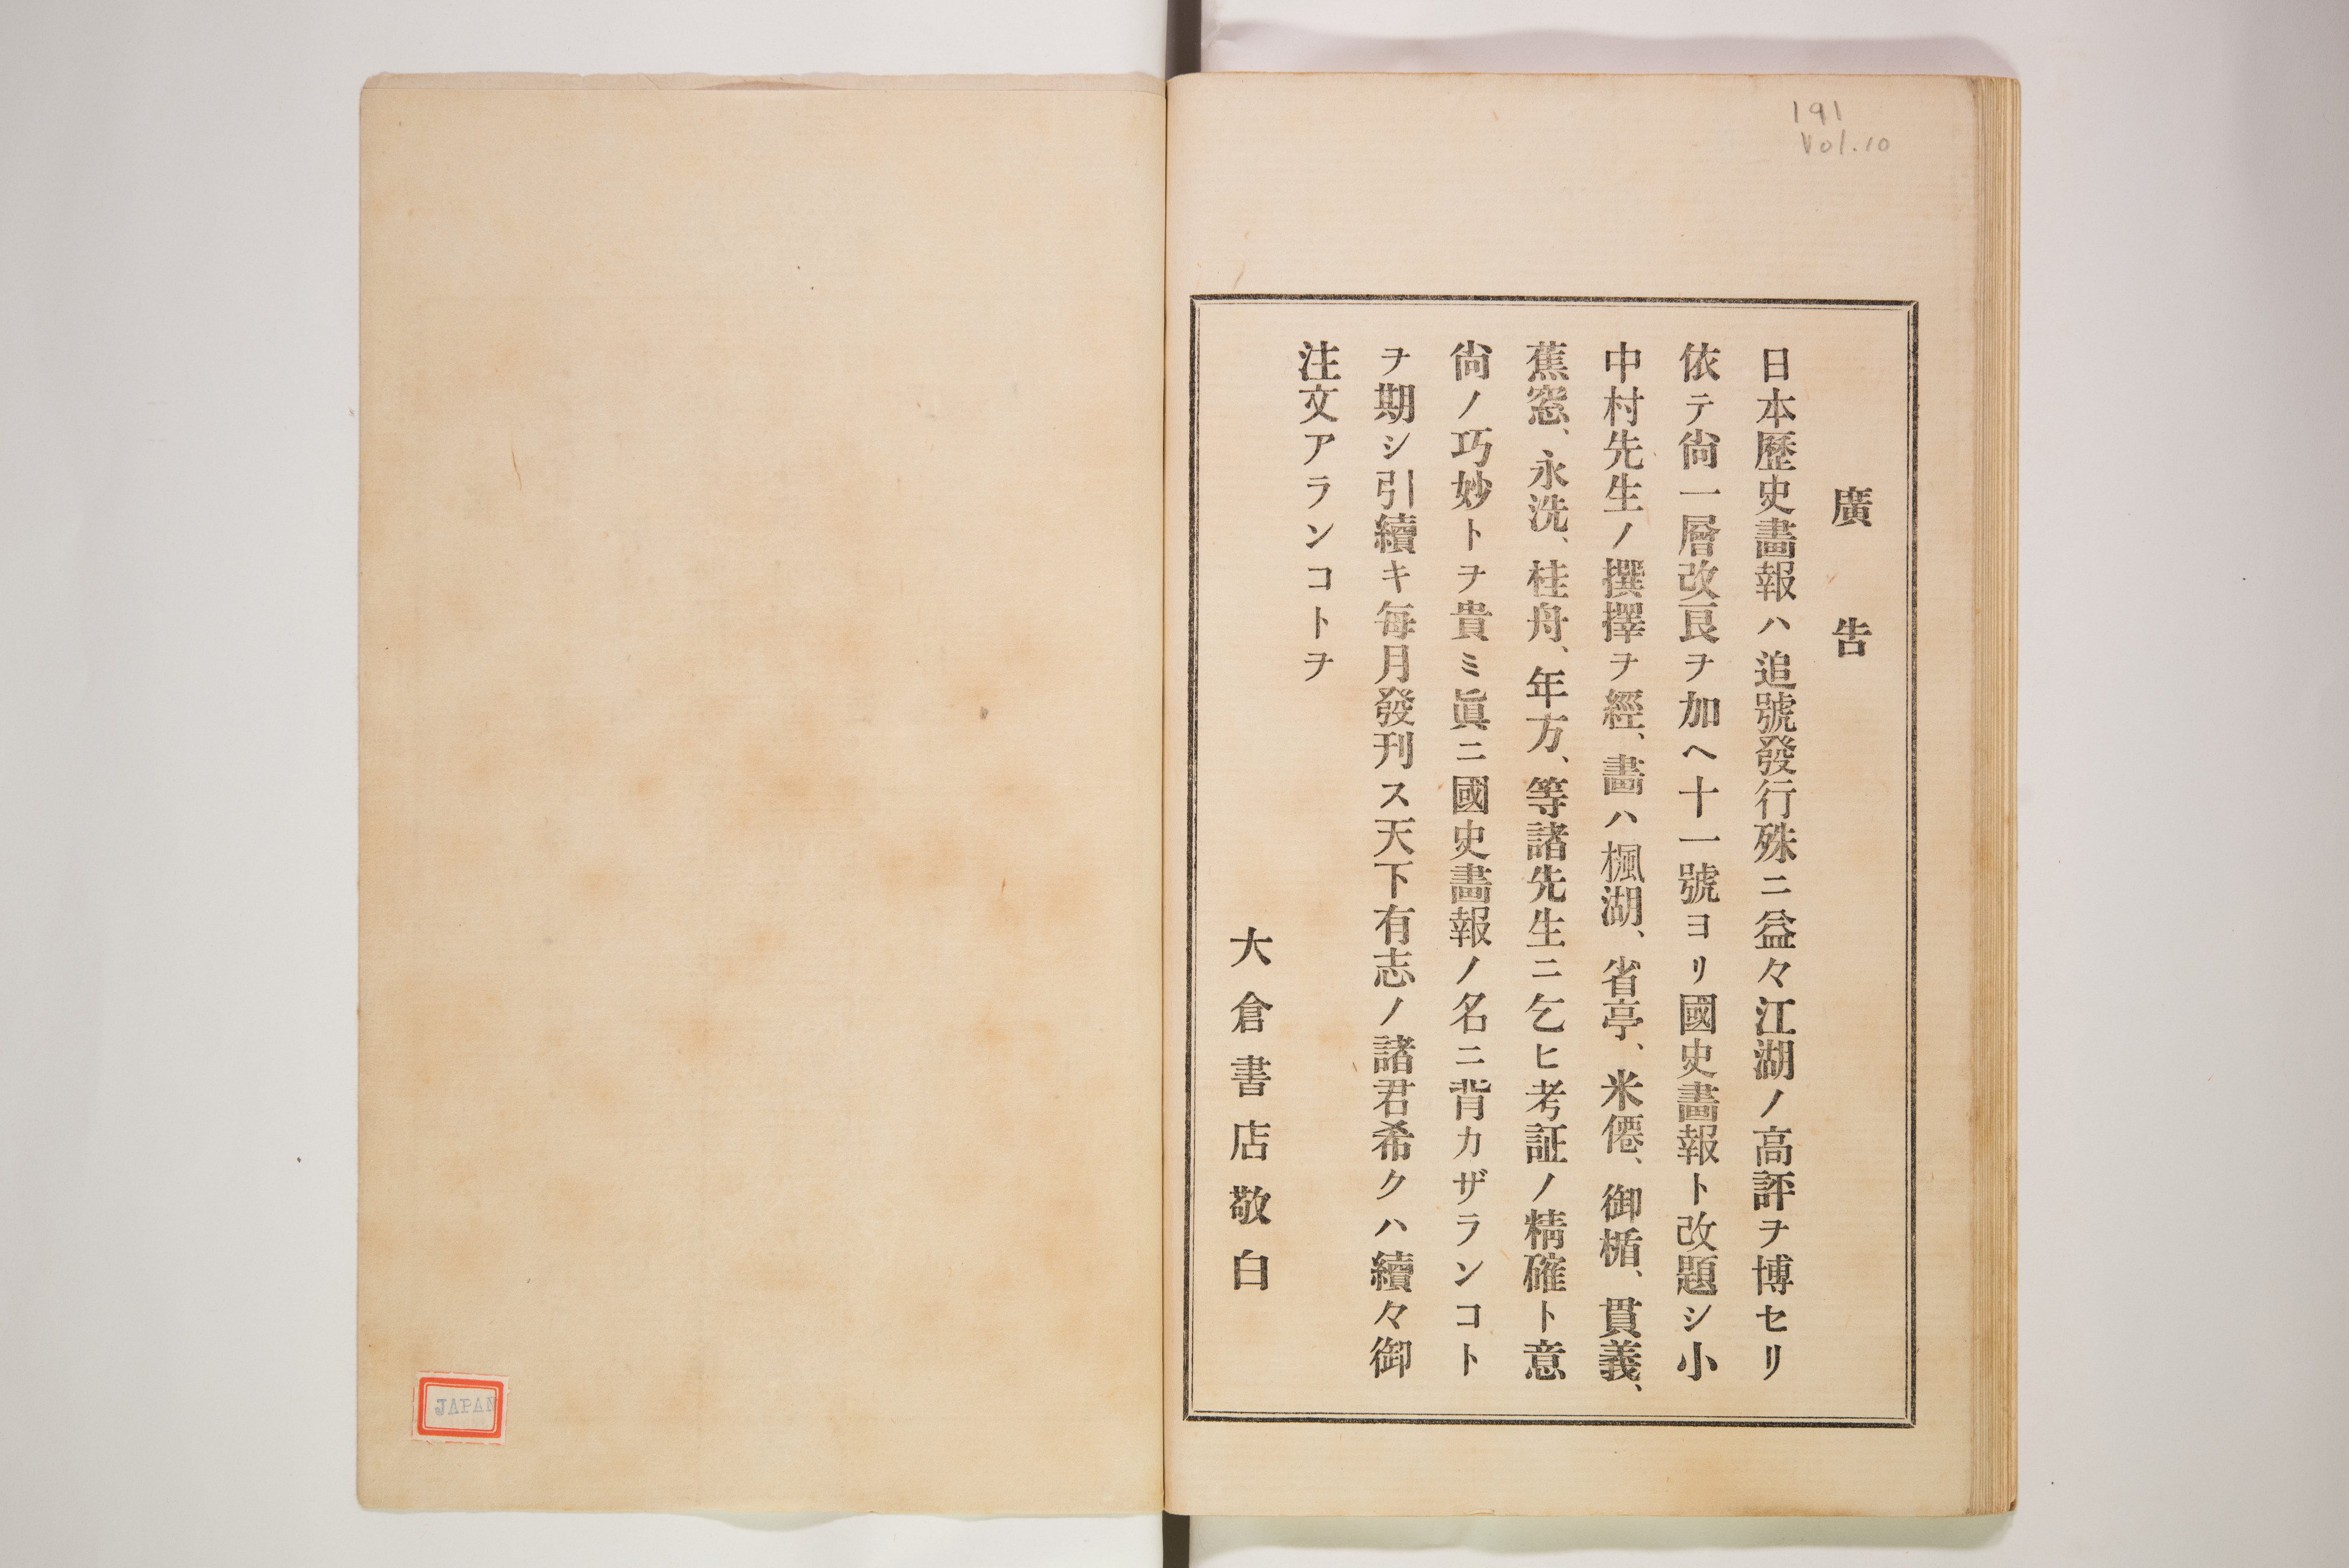 191
Vol.10
廣告
日本歷史畫報ハ追號發行殊ニ益々江湖ノ高評ヲ博セリ
依テ尙一層改良ヲ加ヘ十一號ヨリ國史畫報ト改題シ小
中村先生ノ撰擇ヲ經、畵ハ楓湖、省亭、米僊、御楯、貫義、
蕉窓、永洗、桂舟、年方、等諸先生ニ乞ヒ考証ノ精確ト意
尙ノ巧妙トヲ貴ミ眞ニ國史畫報ノ名ニ背カザランコト
ヲ期シ引續キ每月發刊ス天下有志ノ諸君希クハ續々御
注文アランコトヲ
大倉書店敬白
JAPAN